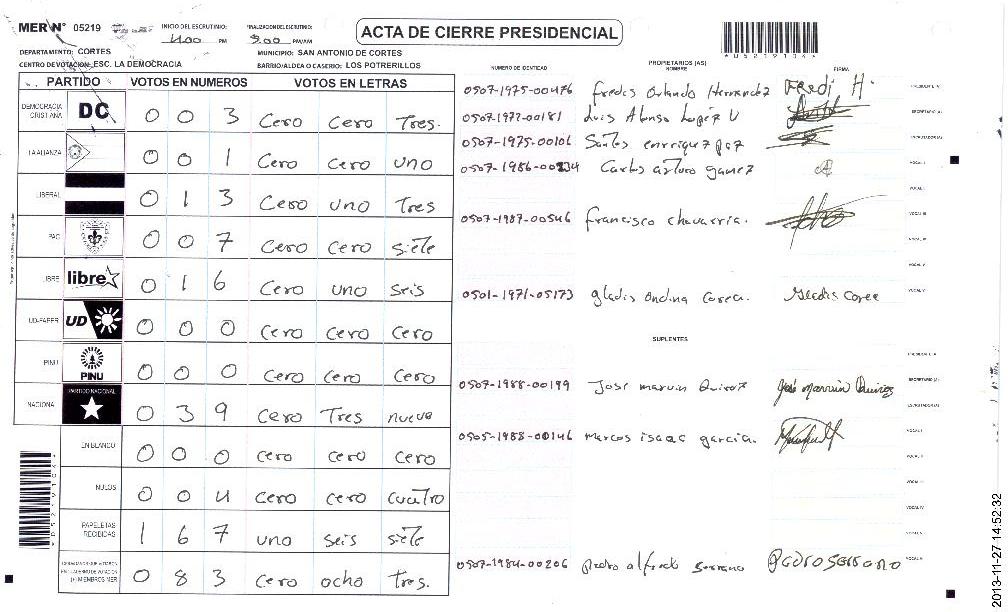 MER N° 05219 INICIO DEL ESCRUTINIO: 4:00 PM FINALIZACION DEL ESCRUTINIO: 9:00 PM/AM
ACTA DE CIERRE PRESIDENCIAL
DEPARTAMENTO: CORTES MUNICIPIO: SAN ANTONIO DE CORTES
CENTRO DE VOTACION: ESC. LA DEMOCRACIA BARRIO/ALDEA O CASERIO: LOS POTRERILLOS
PARTIDO VOTOS EN NUMEROS VOTOS EN LETRAS
DEMOCRACIA CRISTIANA DC 0 0 3 Cero Cero Tres.
LA ALIANZA 0 0 1 Cero Cero uno
LIBERAL 0 1 3 Cero uno Tres
PAC 0 0 7 Cero Cero siete
LIBRE libre 0 1 6 Cero uno seis
UD-FAPER UD 0 0 0 Cero Cero Cero
PINU PINU 0 0 0 Cero Cero Cero
NACIONAL PARTIDO NACIONAL 0 3 9 Cero Tres nueve
EN BLANCO 0 0 0 Cero Cero Cero
NULOS 0 0 4 Cero Cero Cuatro
PAPELETAS RECIBIDAS 1 6 7 uno seis siete
CIUDADANOS QUE VOTARON EN EL CUADERNO DE VOTACION (+) MIEMBROS MER 0 8 3 Cero ocho Tres.
PROPIETARIOS (AS)
NUMERO DE IDENTIDAD NOMBRE FIRMA
0507-1975-00476 fredis Orlando Hernandez Fredi H.
0507-1977-00181 Luis Alonso Lopez U
0507-1975-00106 Santos enrriquez paz
0507-1986-00234 Carlos arturo gamez
0507-1987-00546 francisco chavarria.
0501-1971-05173 gladis ondina Corea. Gladis Corea
SUPLENTES
0507-1988-00199 Jose marvin Quiroz José Marvin Quiroz
0505-1988-00146 marcos isaac garcia.
0507-1984-00206 pedro alfredo serrano Pedro Serrano
05219104
2013-11-27 14:52:32